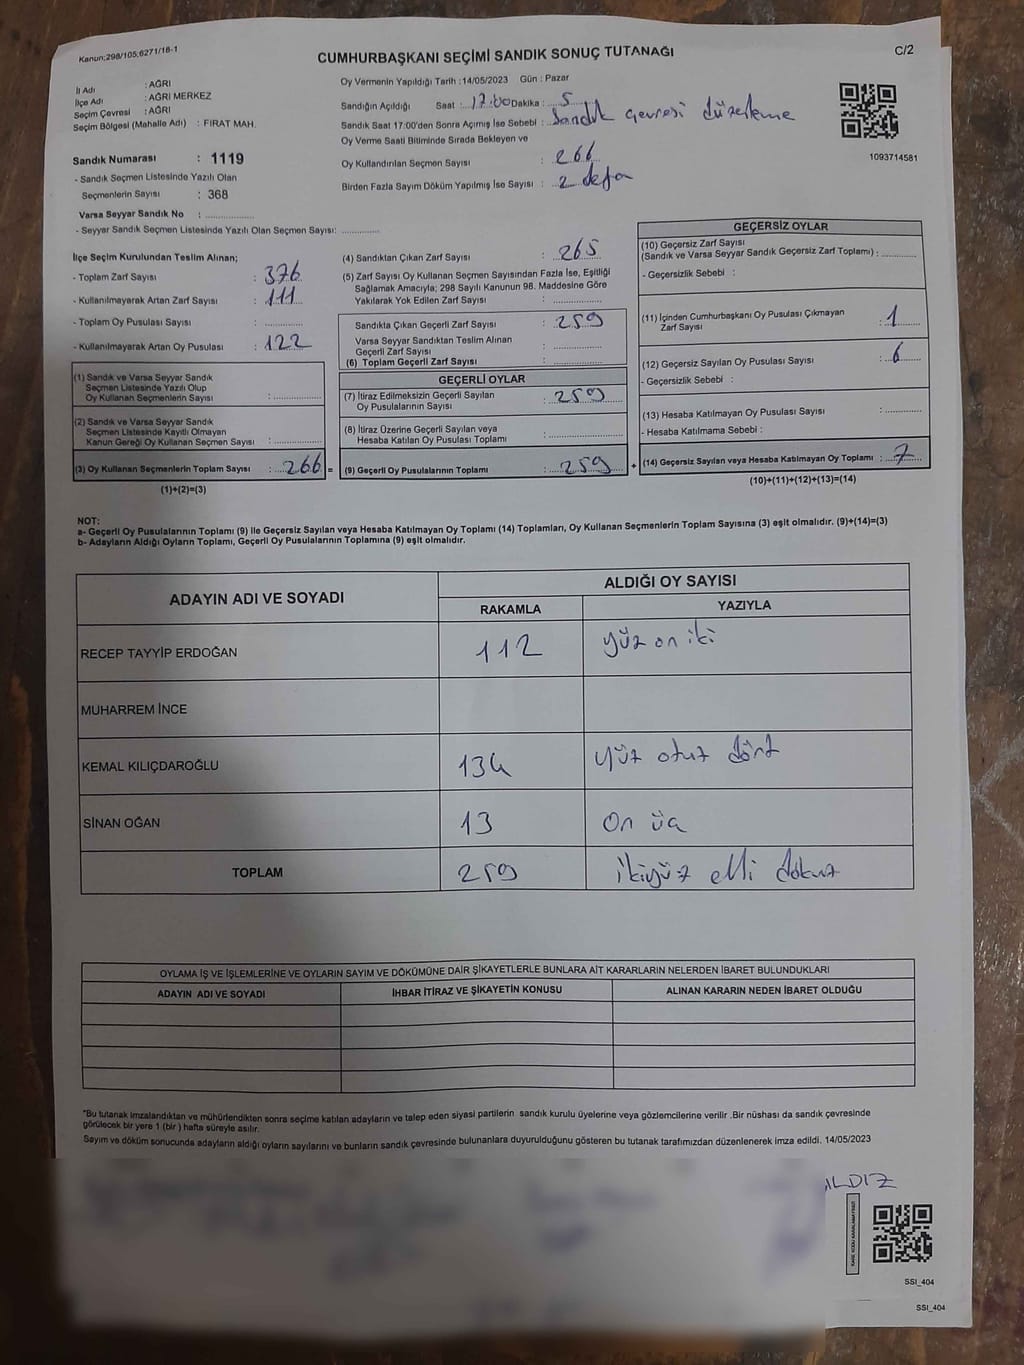 Kanun:298/105;6271/18-1
CUMHURBAŞKANI SEÇİMİ SANDIK SONUÇ TUTANAĞI
C/2
İl Adı : AĞRI
İlçe Adı : AĞRI MERKEZ
Seçim Çevresi : AĞRI
Seçim Bölgesi (Mahalle Adı) : FIRAT MAH.
Oy Vermenin Yapıldığı Tarih : 14/05/2023 Gün : Pazar
Sandığın Açıldığı Saat : 17:00 Dakika : 5
Sandık Saat 17:00'den Sonra Açımış İse Sebebi : Sandık çevresi düzenleme
Oy Verme Saati Bitiminde Sırada Bekleyen ve
Oy Kullandırılan Seçmen Sayısı : 266
Birden Fazla Sayım Döküm Yapılmış İse Sayısı : 2 defa
1093714581
Sandık Numarası : 1119
- Sandık Seçmen Listesinde Yazılı Olan
Seçmenlerin Sayısı : 368
Varsa Seyyar Sandık No : ................
- Seyyar Sandık Seçmen Listesinde Yazılı Olan Seçmen Sayısı: ............
İlçe Seçim Kurulundan Teslim Alınan;
- Toplam Zarf Sayısı : 376
- Kullanılmayarak Artan Zarf Sayısı : 111
- Toplam Oy Pusulası Sayısı : ............
- Kullanılmayarak Artan Oy Pusulası : 122
(1) Sandık ve Varsa Seyyar Sandık
Seçmen Listesinde Yazılı Olup
Oy Kullanan Seçmenlerin Sayısı : ................
(2) Sandık ve Varsa Seyyar Sandık
Seçmen Listesinde Kayıtlı Olmayan
Kanun Gereği Oy Kullanan Seçmen Sayısı : ................
(3) Oy Kullanan Seçmenlerin Toplam Sayısı : 266 =
(1)+(2)=(3)
(4) Sandıktan Çıkan Zarf Sayısı : 265
(5) Zarf Sayısı Oy Kullanan Seçmen Sayısından Fazla İse, Eşitliği
Sağlamak Amacıyla; 298 Sayılı Kanunun 98. Maddesine Göre
Yakılarak Yok Edilen Zarf Sayısı : ................
Sandıkta Çıkan Geçerli Zarf Sayısı : 259
Varsa Seyyar Sandıktan Teslim Alınan
Geçerli Zarf Sayısı : ................
(6) Toplam Geçerli Zarf Sayısı : ................
GEÇERLİ OYLAR
(7) İtiraz Edilmeksizin Geçerli Sayılan
Oy Pusulalarının Sayısı : 259
(8) İtiraz Üzerine Geçerli Sayılan veya
Hesaba Katılan Oy Pusulası Toplamı : ................
(9) Geçerli Oy Pusulalarının Toplamı : 259 +
GEÇERSİZ OYLAR
(10) Geçersiz Zarf Sayısı
(Sandık ve Varsa Seyyar Sandık Geçersiz Zarf Toplamı) : ............
- Geçersizlik Sebebi :
(11) İçinden Cumhurbaşkanı Oy Pusulası Çıkmayan
Zarf Sayısı : 1
(12) Geçersiz Sayılan Oy Pusulası Sayısı : 6
- Geçersizlik Sebebi :
(13) Hesaba Katılmayan Oy Pusulası Sayısı : ............
- Hesaba Katılmama Sebebi :
(14) Geçersiz Sayılan veya Hesaba Katılmayan Oy Toplamı : 7
(10)+(11)+(12)+(13)=(14)
NOT:
a- Geçerli Oy Pusulalarının Toplamı (9) ile Geçersiz Sayılan veya Hesaba Katılmayan Oy Toplamı (14) Toplamları, Oy Kullanan Seçmenlerin Toplam Sayısına (3) eşit olmalıdır. (9)+(14)=(3)
b- Adayların Aldığı Oyların Toplamı, Geçerli Oy Pusulalarının Toplamına (9) eşit olmalıdır.
ADAYIN ADI VE SOYADI
ALDIĞI OY SAYISI
RAKAMLA YAZIYLA
RECEP TAYYİP ERDOĞAN 112 yüz on iki
MUHARREM İNCE
KEMAL KILIÇDAROĞLU 134 yüz otuz dört
SİNAN OĞAN 13 On üç
TOPLAM 259 ikiyüz elli dokuz
OYLAMA İŞ VE İŞLEMLERİNE VE OYLARIN SAYIM VE DÖKÜMÜNE DAİR ŞİKAYETLERLE BUNLARA AİT KARARLARIN NELERDEN İBARET BULUNDUKLARI
ADAYIN ADI VE SOYADI İHBAR İTİRAZ VE ŞİKAYETİN KONUSU ALINAN KARARIN NEDEN İBARET OLDUĞU
"Bu tutanak imzalandıktan ve mühürlendikten sonra seçime katılan adayların ve talep eden siyasi partilerin sandık kurulu üyelerine veya gözlemcilerine verilir .Bir nüshası da sandık çevresinde
görülecek bir yere 1 (bir ) hafta süreyle asılır.
Sayım ve döküm sonucunda adayların aldığı oyların sayılarını ve bunların sandık çevresinde bulunanlara duyurulduğunu gösteren bu tutanak tarafımızdan düzenlenerek imza edildi. 14/05/2023
ILDIZ
SSI_404
SSI_404